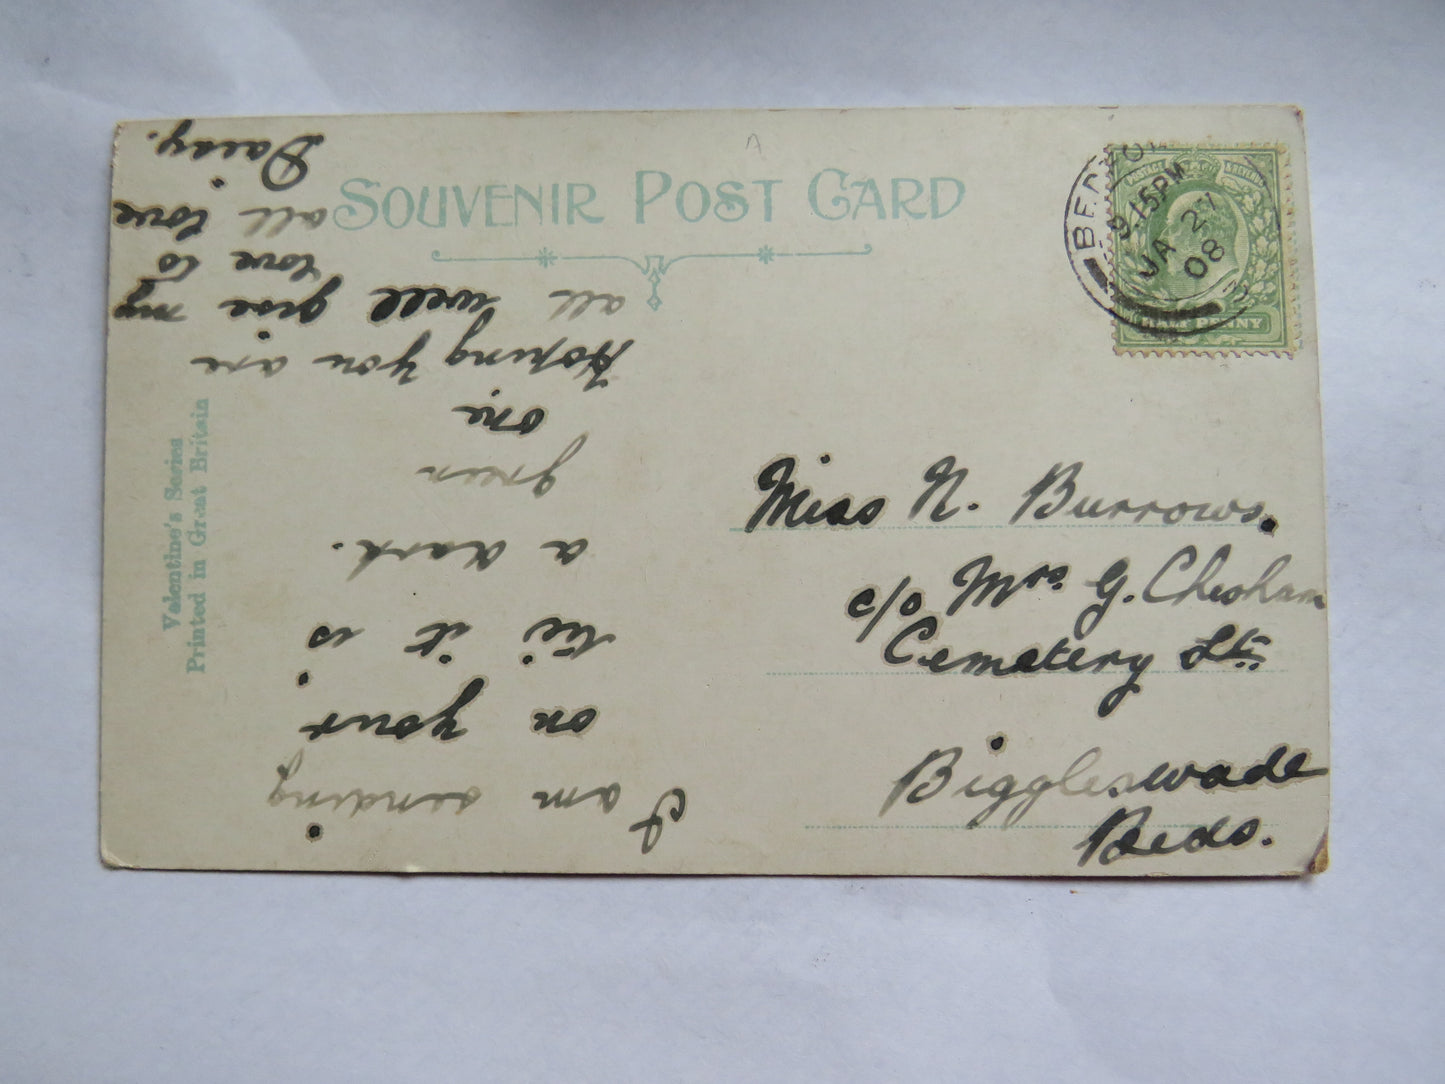 SOUVENIR POST CARD
BEDFORD
9.15PM
JA 27
08
POSTAGE & REVENUE
HALF PENNY
Miss N. Burrows.
c/o Mrs G. Chesham
Cemetery St
Biggleswade
Beds.
I am sending
on your
tie it is
a dark
green
one
Hoping you are
all well give my
love to
all love
Daisy.
Valentine's Series
Printed in Great Britain